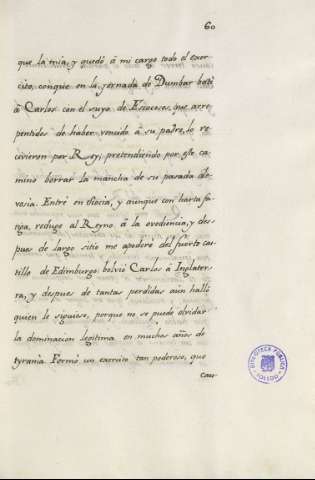 60
que la mia, y quedó á mi cargo todo el exer-
cito, conque en la jornada de Dumbar batí
á Carlos con el suyo de Escoceses, que arre-
pentidos de haber vencido á su padre, lo re-
civieron por Rey; pretendiendo por este ca-
mino borrar la mancha de su pasada ale-
vosia. Entré en Escocia, y aunque con harta fa-
tiga, reduge al Reyno á la ovediencia, y des-
pues de largo sitio me apoderé del fuerte cas-
tillo de Edimburgo: bolvió Carlos á Inglater-
ra, y despues de tantas perdidas aún halló
quien le siguiese, porque no se puede olvidar
la dominacion legitima en muchos años de
tyranía. Formó un exercito tan poderoso, que
BIBLIOTECA PUBLICA
TOLEDO